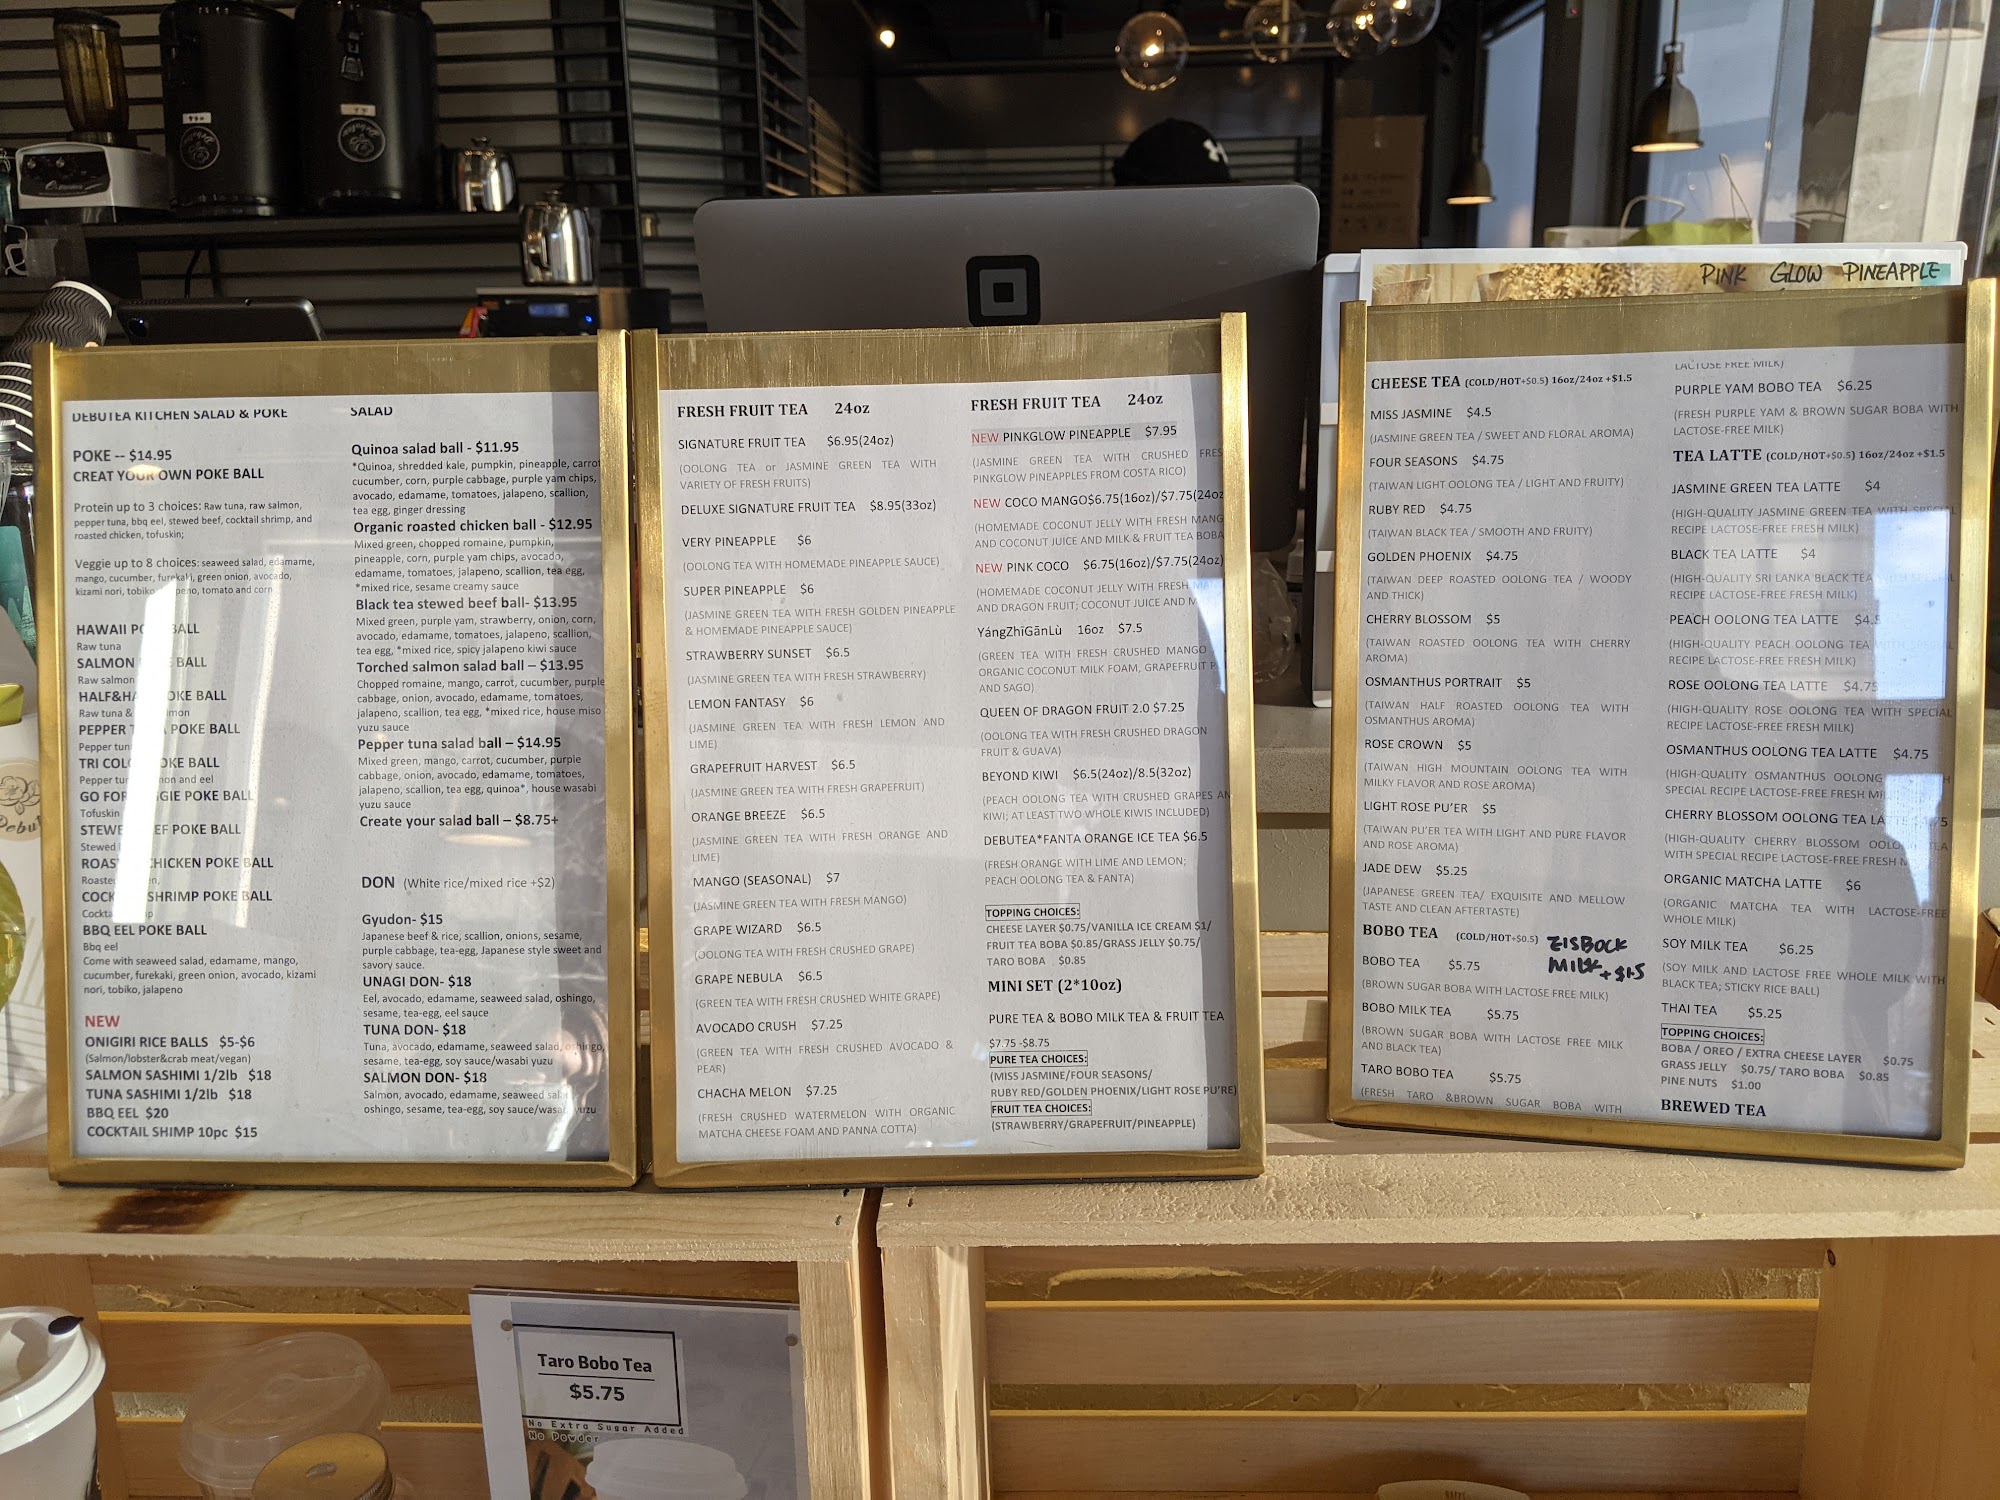 PINK GLOW PINEAPPLE
DEBUTEA KITCHEN SALAD & POKE
POKE -- $14.95
CREAT YOUR OWN POKE BALL
Protein up to 3 choices: Raw tuna, raw salmon,
pepper tuna, bbq eel, stewed beef, cocktail shrimp, and
roasted chicken, tofuskin;
Veggie up to 8 choices: seaweed salad, edamame,
mango, cucumber, furekaki, green onion, avocado,
kizami nori, tomato and corn
HAWAII BALL
Raw tuna
SALMON BALL
Raw salmon
POKE BALL
Raw tuna &
PEPPER POKE BALL
Pepper
TRI POKE BALL
Pepper and eel
GO POKE BALL
Tofuskin
POKE BALL
Stewed
CHICKEN POKE BALL
SHRIMP POKE BALL
BBQ EEL POKE BALL
Bbq eel
Come with seaweed salad, edamame, mango,
cucumber, furekaki, green onion, avocado, kizami
nori, tobiko, jalapeno
NEW
ONIGIRI RICE BALLS $5-$6
(Salmon/lobster&crab meat/vegan)
SALMON SASHIMI 1/2lb $18
TUNA SASHIMI 1/2lb $18
BBQ EEL $20
COCKTAIL SHIMP 10pc $15
SALAD
Quinoa salad ball - $11.95
*Quinoa, shredded kale, pumpkin, pineapple, carrot
cucumber, corn, purple cabbage, purple yam chips,
avocado, edamame, tomatoes, jalapeno, scallion,
tea egg, ginger dressing
Organic roasted chicken ball - $12.95
Mixed green, chopped romaine, pumpkin,
pineapple, corn, purple yam chips, avocado,
edamame, tomatoes, jalapeno, scallion, tea egg,
*mixed rice, sesame creamy sauce
Black tea stewed beef ball- $13.95
Mixed green, purple yam, strawberry, onion, corn,
avocado, edamame, tomatoes, jalapeno, scallion,
tea egg, *mixed rice, spicy jalapeno kiwi sauce
Torched salmon salad ball – $13.95
Chopped romaine, mango, carrot, cucumber, purple
cabbage, onion, avocado, edamame, tomatoes,
jalapeno, scallion, tea egg, *mixed rice, house miso
yuzu sauce
Pepper tuna salad ball – $14.95
Mixed green, mango, carrot, cucumber, purple
cabbage, onion, avocado, edamame, tomatoes,
jalapeno, scallion, tea egg, quinoa*, house wasabi
yuzu sauce
Create your salad ball – $8.75+
DON (White rice/mixed rice +$2)
Gyudon- $15
Japanese beef & rice, scallion, onions, sesame,
purple cabbage, tea-egg, Japanese style sweet and
savory sauce.
UNAGI DON- $18
Eel, avocado, edamame, seaweed salad, oshingo,
sesame, tea-egg, eel sauce
TUNA DON- $18
Tuna, avocado, edamame, seaweed salad, oshingo,
sesame, tea-egg, soy sauce/wasabi yuzu
SALMON DON- $18
Salmon, avocado, edamame, seaweed
oshingo, sesame, tea-egg, soy yuzu
FRESH FRUIT TEA 24oz
SIGNATURE FRUIT TEA $6.95(24oz)
(OOLONG TEA or JASMINE GREEN TEA WITH
VARIETY OF FRESH FRUITS)
DELUXE SIGNATURE FRUIT TEA $8.95(33oz)
VERY PINEAPPLE $6
(OOLONG TEA WITH HOMEMADE PINEAPPLE SAUCE)
SUPER PINEAPPLE $6
(JASMINE GREEN TEA WITH FRESH GOLDEN PINEAPPLE
& HOMEMADE PINEAPPLE SAUCE)
STRAWBERRY SUNSET $6.5
(JASMINE GREEN TEA WITH FRESH STRAWBERRY)
LEMON FANTASY $6
(JASMINE GREEN TEA WITH FRESH LEMON AND
LIME)
GRAPEFRUIT HARVEST $6.5
(JASMINE GREEN TEA WITH FRESH GRAPEFRUIT)
ORANGE BREEZE $6.5
(JASMINE GREEN TEA WITH FRESH ORANGE AND
LIME)
MANGO (SEASONAL) $7
(JASMINE GREEN TEA WITH FRESH MANGO)
GRAPE WIZARD $6.5
(OOLONG TEA WITH FRESH CRUSHED GRAPE)
GRAPE NEBULA $6.5
(GREEN TEA WITH FRESH CRUSHED WHITE GRAPE)
AVOCADO CRUSH $7.25
(GREEN TEA WITH FRESH CRUSHED AVOCADO &
PEAR)
CHACHA MELON $7.25
(FRESH CRUSHED WATERMELON WITH ORGANIC
MATCHA CHEESE FOAM AND PANNA COTTA)
FRESH FRUIT TEA 24oz
NEW PINKGLOW PINEAPPLE $7.95
(JASMINE GREEN TEA WITH CRUSHED FRES
PINKGLOW PINEAPPLES FROM COSTA RICO)
NEW COCO MANGO$6.75(16oz)/$7.75(24oz
(HOMEMADE COCONUT JELLY WITH FRESH MANG
AND COCONUT JUICE AND MILK & FRUIT TEA BOBA
NEW PINK COCO $6.75(16oz)/$7.75(24oz)
(HOMEMADE COCONUT JELLY WITH FRESH
AND DRAGON FRUIT; COCONUT JUICE AND M
YángZhīGānLù 16oz $7.5
(GREEN TEA WITH FRESH CRUSHED MANGO
ORGANIC COCONUT MILK FOAM, GRAPEFRUIT P
AND SAGO)
QUEEN OF DRAGON FRUIT 2.0 $7.25
(OOLONG TEA WITH FRESH CRUSHED DRAGON
FRUIT & GUAVA)
BEYOND KIWI $6.5(24oz)/8.5(32oz)
(PEACH OOLONG TEA WITH CRUSHED GRAPES AN
KIWI; AT LEAST TWO WHOLE KIWIS INCLUDED)
DEBUTEA*FANTA ORANGE ICE TEA $6.5
(FRESH ORANGE WITH LIME AND LEMON;
PEACH OOLONG TEA & FANTA)
TOPPING CHOICES:
CHEESE LAYER $0.75/VANILLA ICE CREAM $1/
FRUIT TEA BOBA $0.85/GRASS JELLY $0.75/
TARO BOBA $0.85
MINI SET (2*10oz)
PURE TEA & BOBO MILK TEA & FRUIT TEA
$7.75 -$8.75
PURE TEA CHOICES:
(MISS JASMINE/FOUR SEASONS/
RUBY RED/GOLDEN PHOENIX/LIGHT ROSE PU'RE)
FRUIT TEA CHOICES:
(STRAWBERRY/GRAPEFRUIT/PINEAPPLE)
CHEESE TEA (COLD/HOT+$0.5) 16oz/24oz +$1.5
MISS JASMINE $4.5
(JASMINE GREEN TEA / SWEET AND FLORAL AROMA)
FOUR SEASONS $4.75
(TAIWAN LIGHT OOLONG TEA / LIGHT AND FRUITY)
RUBY RED $4.75
(TAIWAN BLACK TEA / SMOOTH AND FRUITY)
GOLDEN PHOENIX $4.75
(TAIWAN DEEP ROASTED OOLONG TEA / WOODY
AND THICK)
CHERRY BLOSSOM $5
(TAIWAN ROASTED OOLONG TEA WITH CHERRY
AROMA)
OSMANTHUS PORTRAIT $5
(TAIWAN HALF ROASTED OOLONG TEA WITH
OSMANTHUS AROMA)
ROSE CROWN $5
(TAIWAN HIGH MOUNTAIN OOLONG TEA WITH
MILKY FLAVOR AND ROSE AROMA)
LIGHT ROSE PU'ER $5
(TAIWAN PU'ER TEA WITH LIGHT AND PURE FLAVOR
AND ROSE AROMA)
JADE DEW $5.25
(JAPANESE GREEN TEA/ EXQUISITE AND MELLOW
TASTE AND CLEAN AFTERTASTE)
BOBO TEA (COLD/HOT+$0.5) ZISBOCK
MILK +$1.5
BOBO TEA $5.75
(BROWN SUGAR BOBA WITH LACTOSE FREE MILK)
BOBO MILK TEA $5.75
(BROWN SUGAR BOBA WITH LACTOSE FREE MILK
AND BLACK TEA)
TARO BOBO TEA $5.75
(FRESH TARO &BROWN SUGAR BOBA WITH
LACTOSE FREE MILK)
PURPLE YAM BOBO TEA $6.25
(FRESH PURPLE YAM & BROWN SUGAR BOBA WITH
LACTOSE-FREE MILK)
TEA LATTE (COLD/HOT+$0.5) 16oz/24oz +$1.5
JASMINE GREEN TEA LATTE $4
(HIGH-QUALITY JASMINE GREEN TEA WITH SPECIAL
RECIPE LACTOSE-FREE FRESH MILK)
BLACK TEA LATTE $4
(HIGH-QUALITY SRI LANKA BLACK TEA WITH SPECIAL
RECIPE LACTOSE-FREE FRESH MILK)
PEACH OOLONG TEA LATTE
(HIGH-QUALITY PEACH OOLONG TEA WITH SPECIAL
RECIPE LACTOSE-FREE FRESH MILK)
ROSE OOLONG TEA LATTE $4.75
(HIGH-QUALITY ROSE OOLONG TEA WITH SPECIAL
RECIPE LACTOSE-FREE FRESH MILK)
OSMANTHUS OOLONG TEA LATTE $4.75
(HIGH-QUALITY OSMANTHUS OOLONG
SPECIAL RECIPE LACTOSE-FREE FRESH
CHERRY BLOSSOM OOLONG TEA
(HIGH-QUALITY CHERRY BLOSSOM
WITH SPECIAL RECIPE LACTOSE-FREE FRESH
ORGANIC MATCHA LATTE $6
(ORGANIC MATCHA TEA WITH LACTOSE-FREE
WHOLE MILK)
SOY MILK TEA $6.25
(SOY MILK AND LACTOSE FREE WHOLE MILK WITH
BLACK TEA; STICKY RICE BALL)
THAI TEA $5.25
TOPPING CHOICES:
BOBA / OREO / EXTRA CHEESE LAYER $0.75
GRASS JELLY $0.75/ TARO BOBA $0.85
PINE NUTS $1.00
BREWED TEA
Taro Bobo Tea
$5.75
No Extra Sugar Added
No Powder